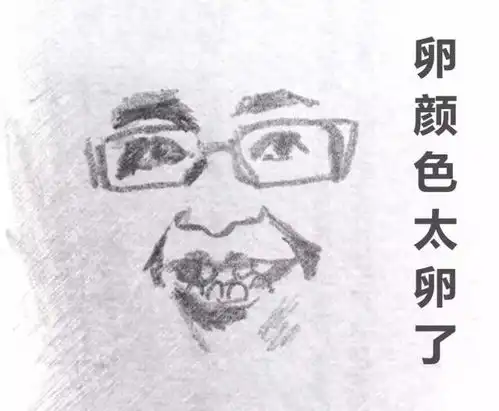 卵颜色太卵了